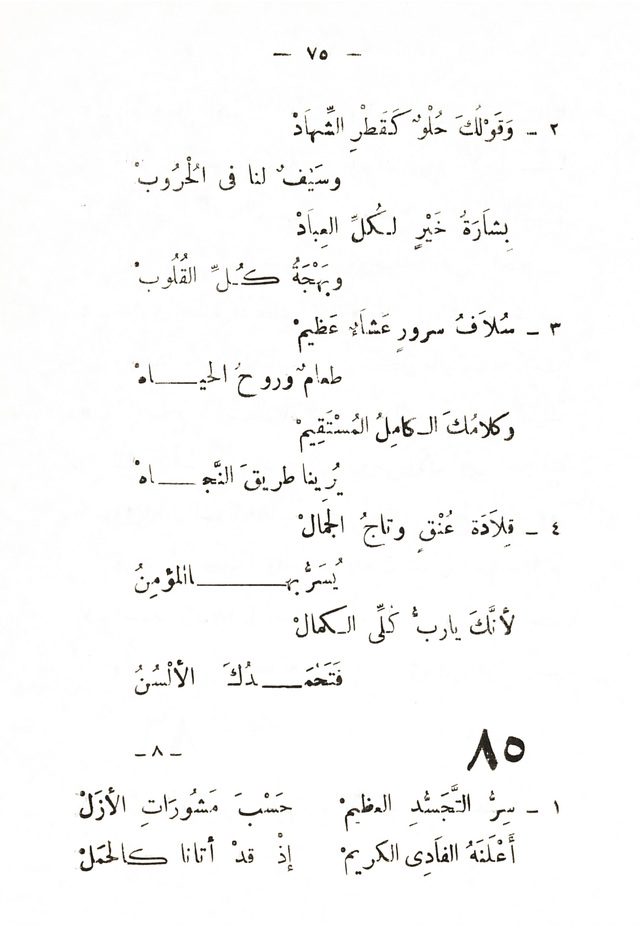 — ٧٥ —
٢ - وَقَوْلُكَ حُلْوٌ كَقَطْرِ الشِّهَادْ
وسَيْفٌ لنا فى الْحُرُوبْ
بِشَارَةُ خَيْرٍ لـكُلِّ العِبَادْ
وبَهْجَةُ كُـلِّ القُلُوبْ
٣ - سُلاَفُ سرورٍ عَشَاءٌ عَظِيمْ
طعامٌ وروحُ الحيـــاهْ
وكلامُكَ الـكامِلُ المُسْتَقِيمْ
يُرِينا طريقَ النَّجـــاهْ
٤ - قِلاَدَة عُنْقٍ وتاجُ الجَمَالْ
يُسَرُّ بِهـــــا المؤمِنُ
لأَنَّكَ ياربُّ كُلِّى الـكمالْ
فَتَحْمَــدُكَ الألْسُنُ
٨٥ - ٨ -
١ - سِرُّ التَّجَسُّدِ العظيمْ حَسْبَ مَشُورَاتِ الأزَلْ
أَعْلَنَهُ الفَادِى الكريمْ إذْ قدْ أتانا كالحَمَلْ